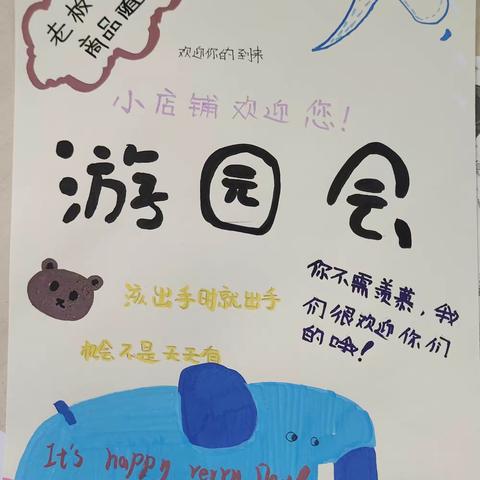 老板
商品随
欢迎你的到来
小店铺欢迎您!
游园会
该出手时就出手
机会不是天天有
你不需羡慕,我
们很欢迎你们
的哦!
It's happy verry Day!